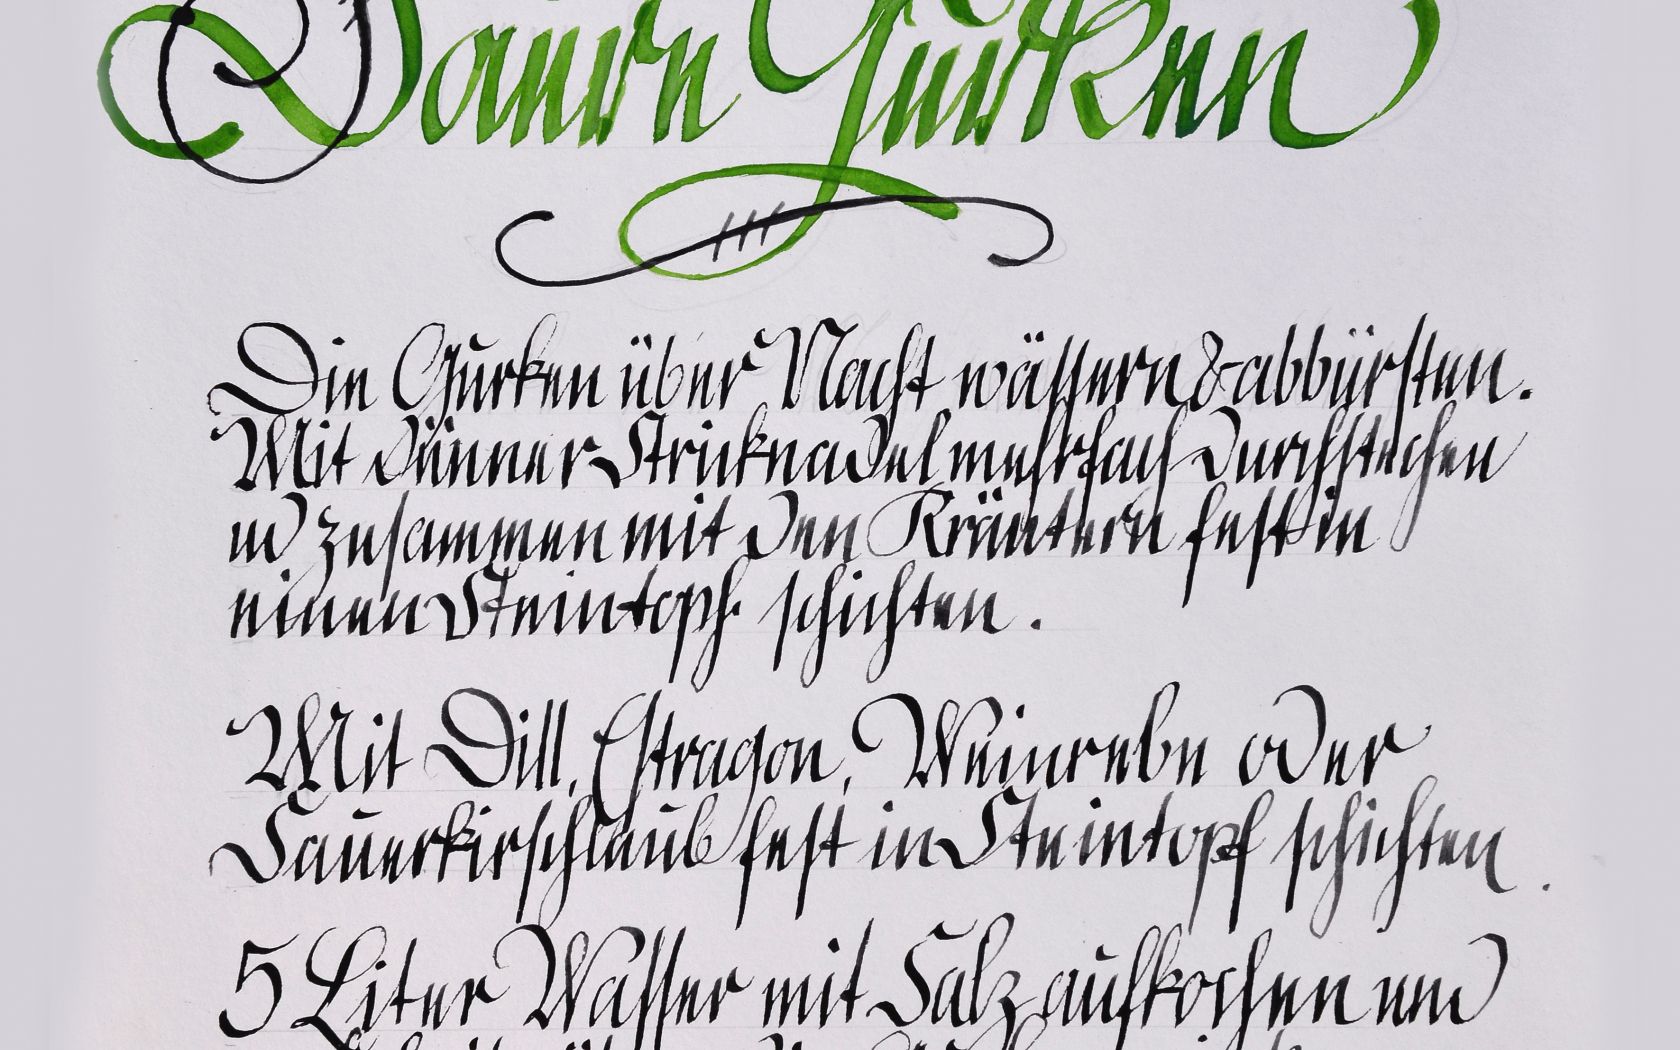 Saure Gurken
Die Gurken über Nacht wässern & abbürsten.
Mit dünner Stricknadel mehrfach durchstechen
und zusammen mit den Kräutern fest in
einen Steintopf schichten.
Mit Dill, Estragon, Weinrebe oder
Sauerkirschlaub fest in Steintopf schichten.
5 Liter Wasser mit Salz aufkochen und